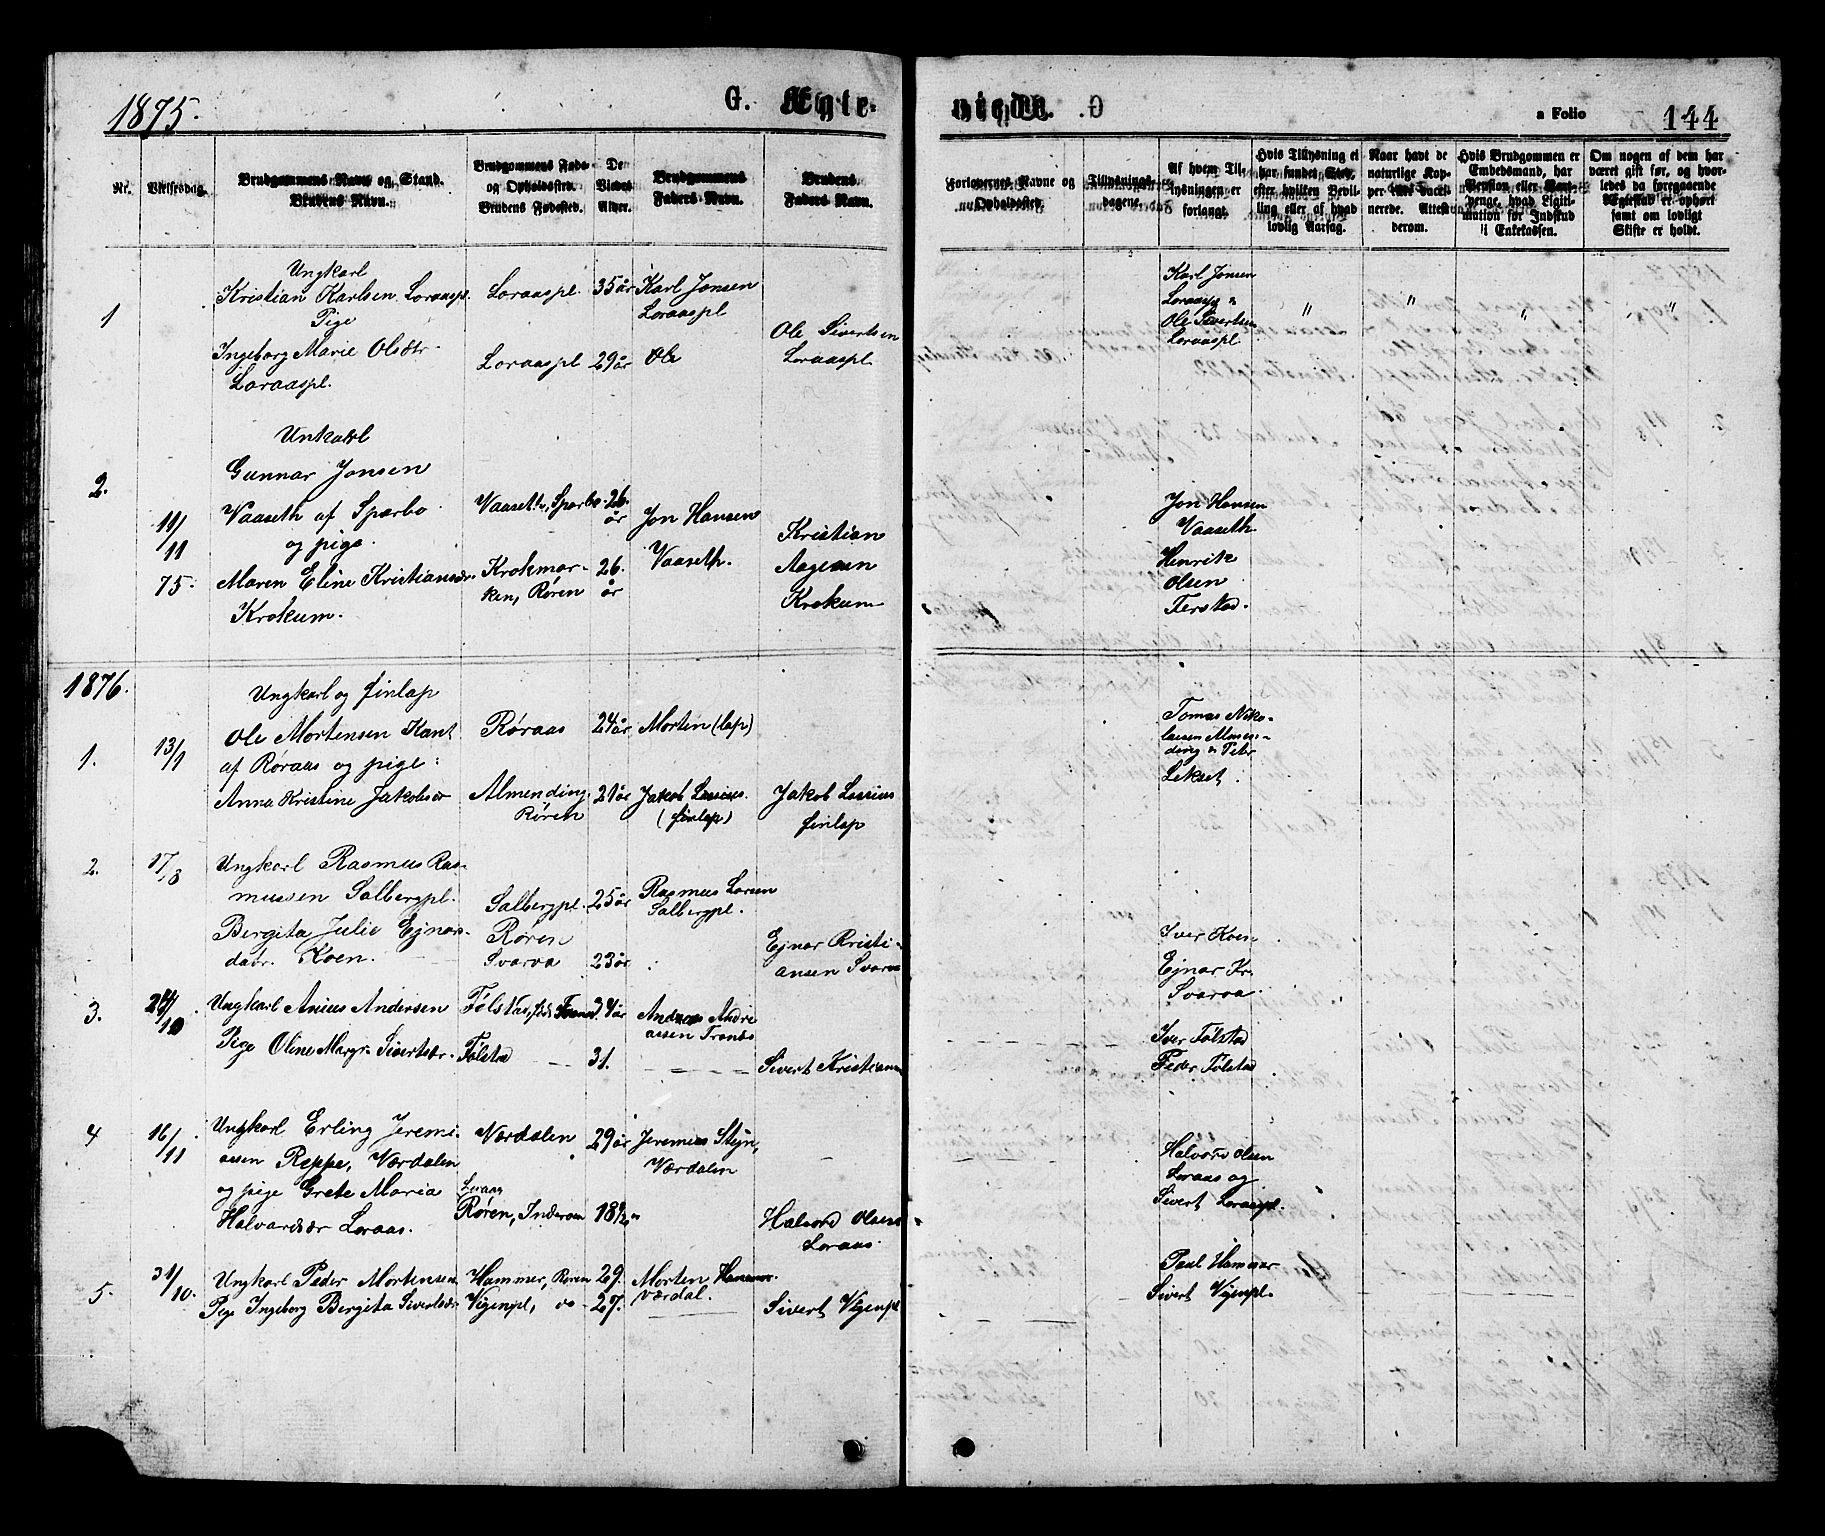 1875.
G. Ægte-
viede.
a Folio
144
Nr.
Vielsesdag.
Brudgommens Navn og Stand.
Brudens Navn.
Brudgommens Føde-
og Opholdssted.
Brudens Fødested.
De
Viedes
Alder.
Brudgommens
Faders Navn.
Brudens
Faders Navn.
Forlovernes Navne og
Opholdssted.
Tillysnings-
dagene.
Af hvem Til-
lysningen er
forlangt.
Hvis Tillysning ei
har fundet Sted,
efter hvilken Bevil-
ling eller af hvad
lovlig Aarsag.
Naar havt de
naturlige Kop-
per eller vacci-
nerede. Attest
derom.
Hvis Brudgommen er
Embedsmand, har
Pension eller Vart-
penge, hvad Ligiti-
mation for Indskud
i Enkekassen.
Om nogen af dem har
været gift før, og hvor-
ledes da foregaaende
Ægteskab er ophørt
samt om lovligt
Skifte er holdt.
1
Ungkarl
Kristian Karlsen Loraaspl.
Pige
Ingeborg Marie Olsdtr.
Loraaspl.
Loraaspl.
Loraaspl
35 år
29 år
Karl Jonsen
Loraaspl
Ole
Ole Sivertsen
Loraaspl.
Karl Jonsen
Ole Sivertsen
Loraaspl.
" " " "
2.
19/11
75.
Unkarl
Gunnar Jonsen
Vaaseth af Sparbo
og pige
Maren Eline Kristiansdr.
Krokum.
Vaaseth, Sparbo.
Krokmar-
ken, Røren
26.
år
26.
år
Jon Hansen
Vaaseth.
Kristian
Aagesen
Krokum
Jon Hansen
Vaaseth
Henrik
Olsen
1876.
1.
13/1
Ungkarl og finlap
Ole Mortensen Kant
af Røraas og pige:
Anna Kristine Jakobsdr
Røraas
Almending
Røren
24 år
21 år
Morten (lap)
Jakob Lassius.
(finlap)
Jakob Lassius
finlap
Tomas Niko-
Peder
Lekset.
2.
17/3
Ungkarl Rasmus Ras-
mussen Salbergpl.
Bergita Julie Ejnars-
datr. Koen.
Salbergpl.
Røren
Svarva
25 år
23 år
Rasmus Lorsen
Salbergpl.
Ejnar Kristi-
ansen Svarva
Iver Koen
Ejnar Kr.
Svarva.
3.
/10
Ungkarl Anius Andersen
Pige Oline Margr. Sivertsdr.
Tølstad
24 år
31.
Andreas Andre
assen
Sivert Kristiansen
Iver Tølstad
Peder Tølstad
4
16/11
Ungkarl Erling Jeremi-
assen Reppe, Værdalen
og pige Grete Maria
Halvardsdr Loraas.
Værdalen
Loraas
Røren, Inderøen
29 år
18 1/2 "
Jeremias Stejn,
Værdalen
Halvard Olsen
Loraas.
Halvard Olsen
Loraas og
Sivert Loraaspl.
5.
31/10.
Ungkarl Peder Mortensen
Pige Ingeborg Bergita Sivertsdr
Hammer, Røren
Vigenpl, do
29.
27.
Morten
Værdal.
Sivert Vigenpl
Paul Hammer
Sivert Vigenpl.